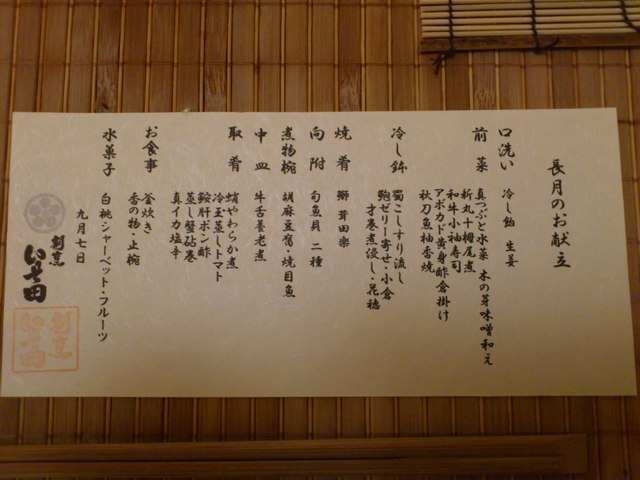 長月のお献立
口洗い 冷し飴 生姜
前菜 真つぶと水菜 木の芽味噌和え
新丸十梔尾煮
和牛小袖寿司
アボカド黄身酢倉掛け
秋刀魚柚香焼
冷し鉢 蜀こしすり流し
鮑ゼリー寄せ・小倉
才巻煮浸し・花穂
焼肴 鰤 茸田楽
向附 旬魚貝 二種
煮物椀 胡麻豆腐・焼目魚
中皿 牛舌養老煮
取肴 蛸やわらか煮
冷玉蒸しトマト
鮟肝ポン酢
蒸し蟹砧巻
真イカ塩辛
お食事 釜炊き
香の物・止椀
水菓子 白桃シャーベット・フルーツ
九月七日
割烹